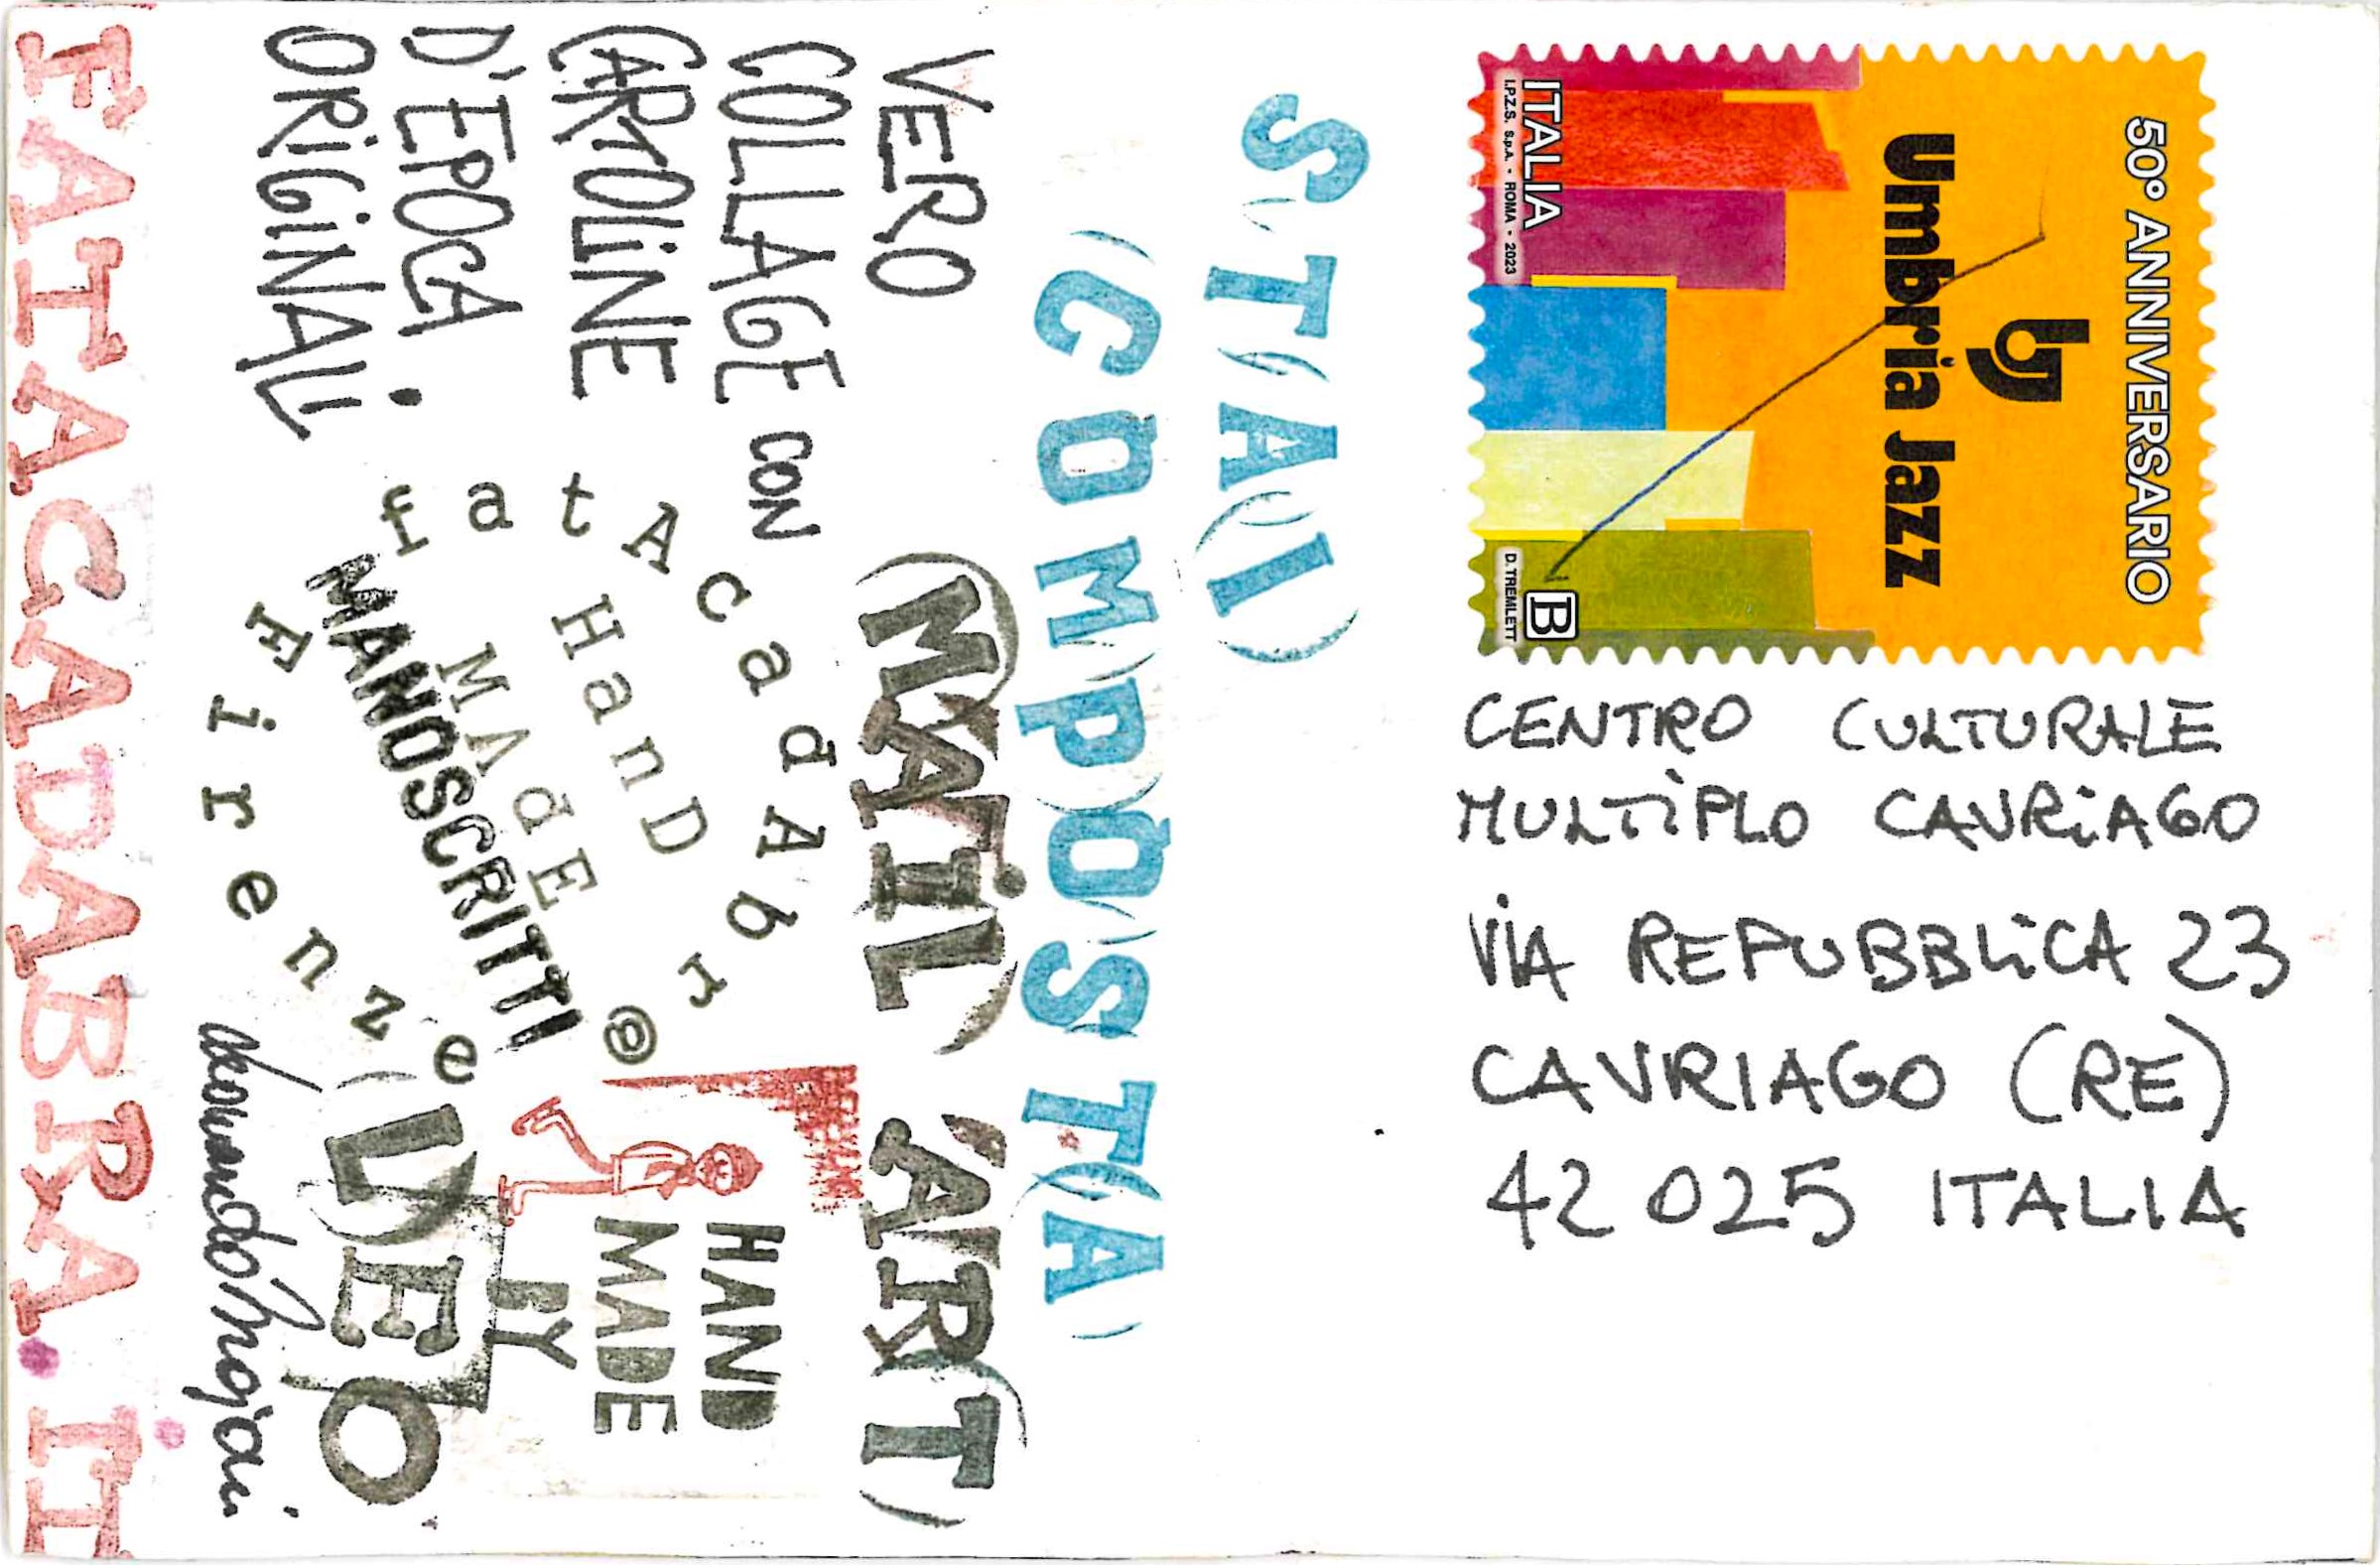 50° ANNIVERSARIO
uj
Umbria Jazz
ITALIA
I.P.Z.S. S.p.A. - ROMA - 2023
D. TREMLETT
B
CENTRO CULTURALE
MULTIPLO CAVRIAGO
VIA REPUBBLICA 23
CAVRIAGO (RE)
42025 ITALIA
S(T(A(I)
(COM)P(O)ST(A)
VERO
COLLAGE CON
CARTOLINE
D'EPOCA.
ORIGINALI
(MAIL)
(ART)
fatAcadAbr@
HanD
MAdE
MANOSCRITTI
Firenze
HAND
MADE
BY
(D)EO
FATACADABRA.IT